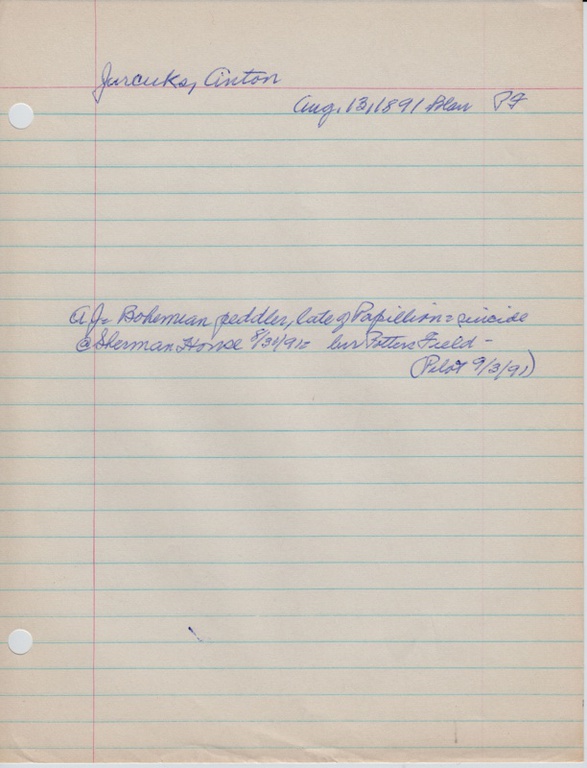 Jurcuks, Anton
Aug. 13, 1891 Blair PF
A J = Bohemian peddler, late of Papillion = suicide
@ Sherman House 8/30/91 = bur Potters Field -
(Pilot 9/3/91)